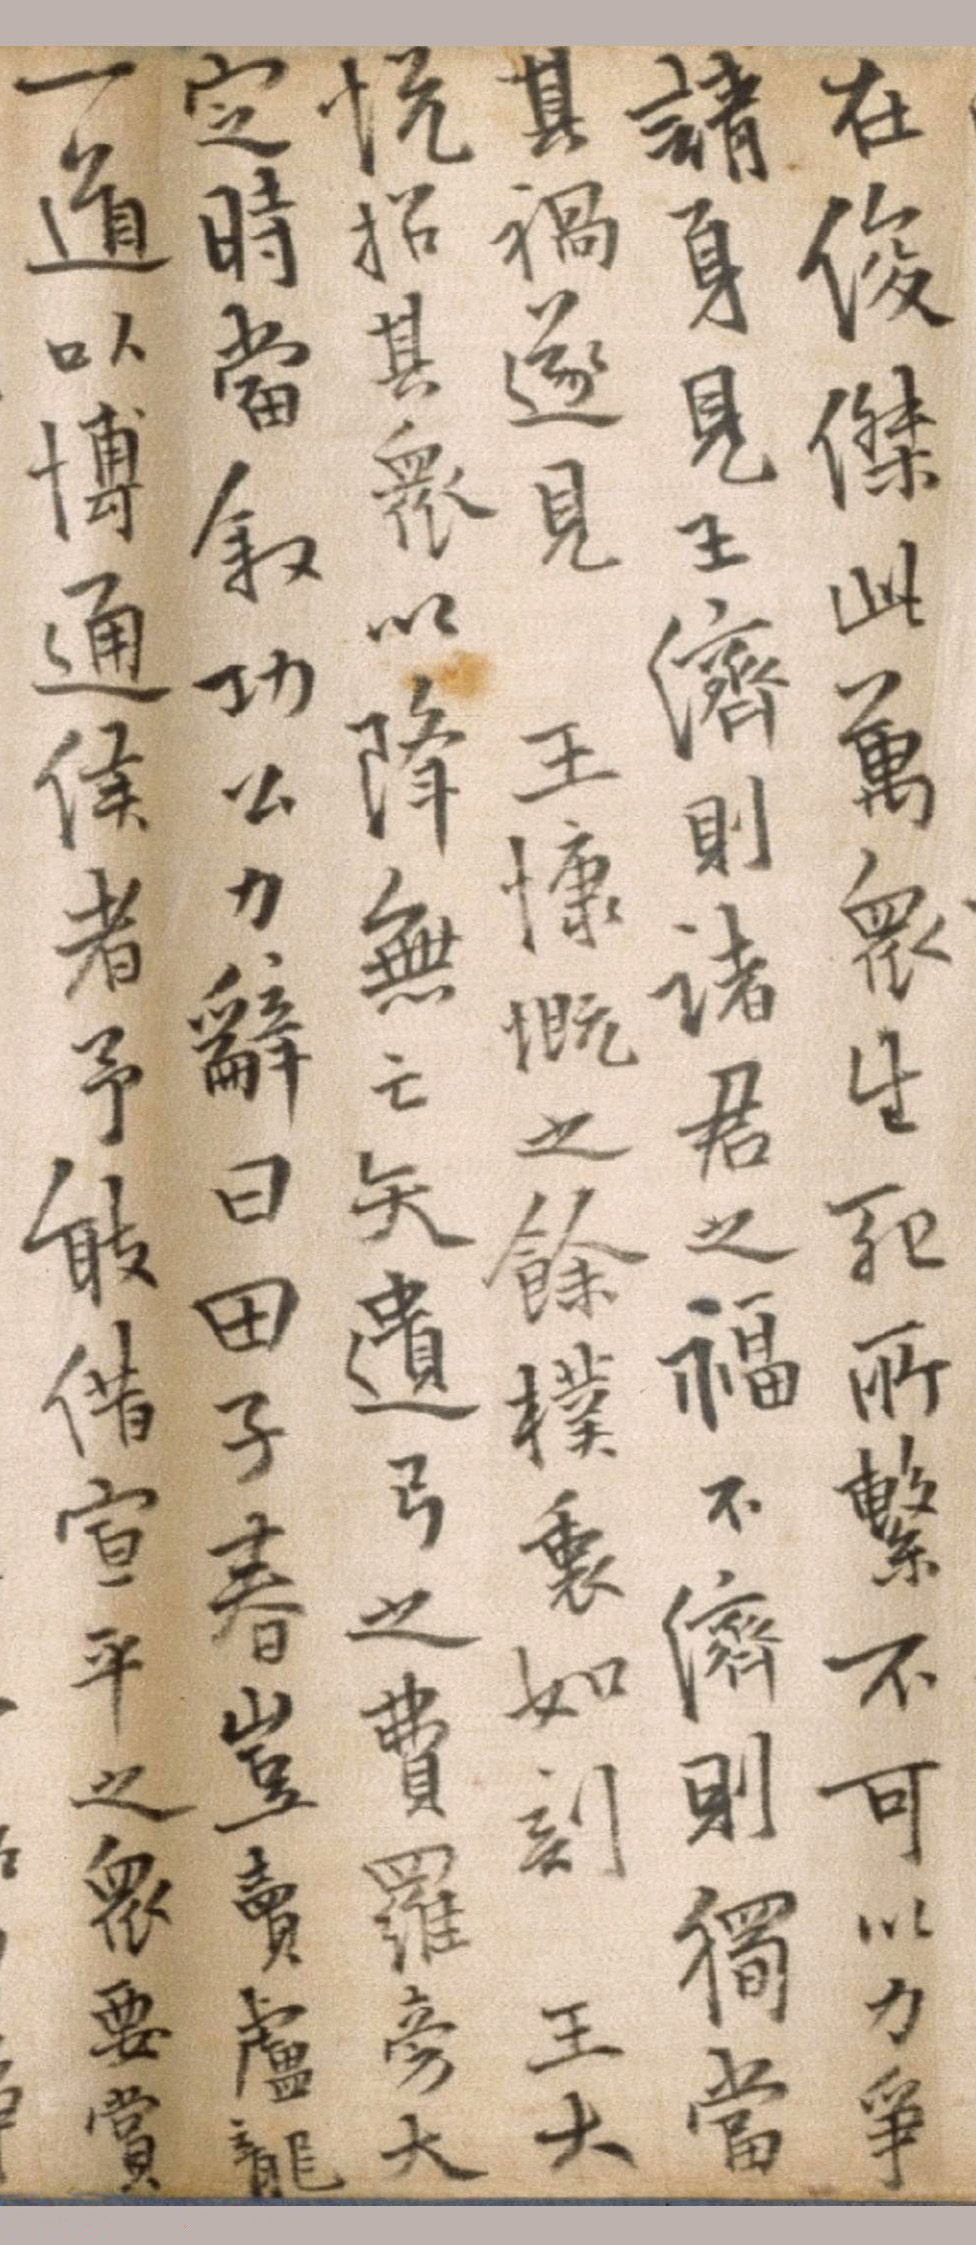 在俊傑此萬眾生死所繫不可以力爭
請身見王濟則諸君之福不濟則獨當
其禍遂見 王慷慨之餘樸裏如刻 王大
悦招其眾以降無亡矢遺弓之費羅旁大
定時當叙功公力辭曰田子春豈賣盧龍
一道以博通侯者予敢借宣平之眾要賞